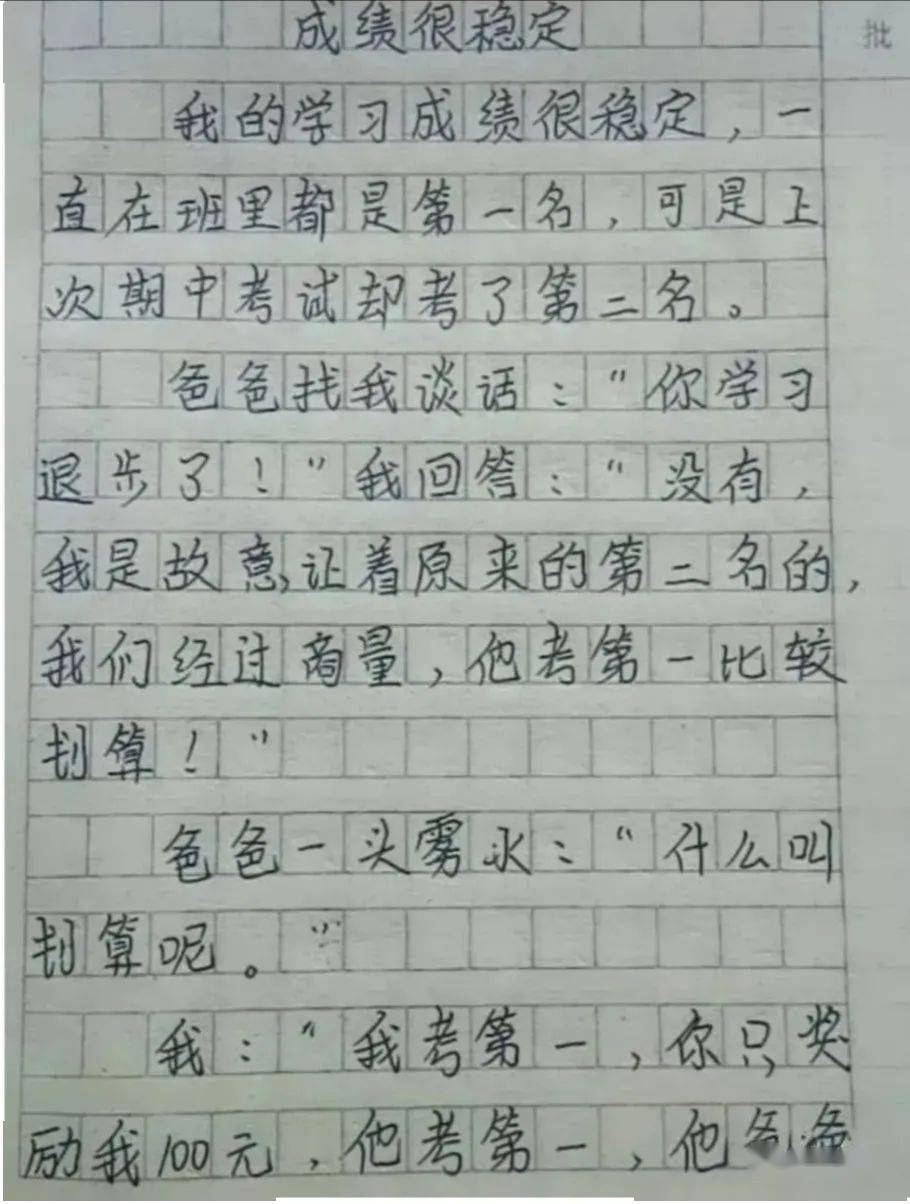 成绩很稳定
批
我的学习成绩很稳定，一
直在班里都是第一名，可是上
次期中考试却考了第二名。
爸爸找我谈话：“你学习
退步了！”我回答：“没有，
我是故意让着原来的第二名的，
我们经过商量，他考第一比较
划算！”
爸爸一头雾水：“什么叫
划算呢。”
我：“我考第一，你只奖
励我100元，他考第一，他爸爸